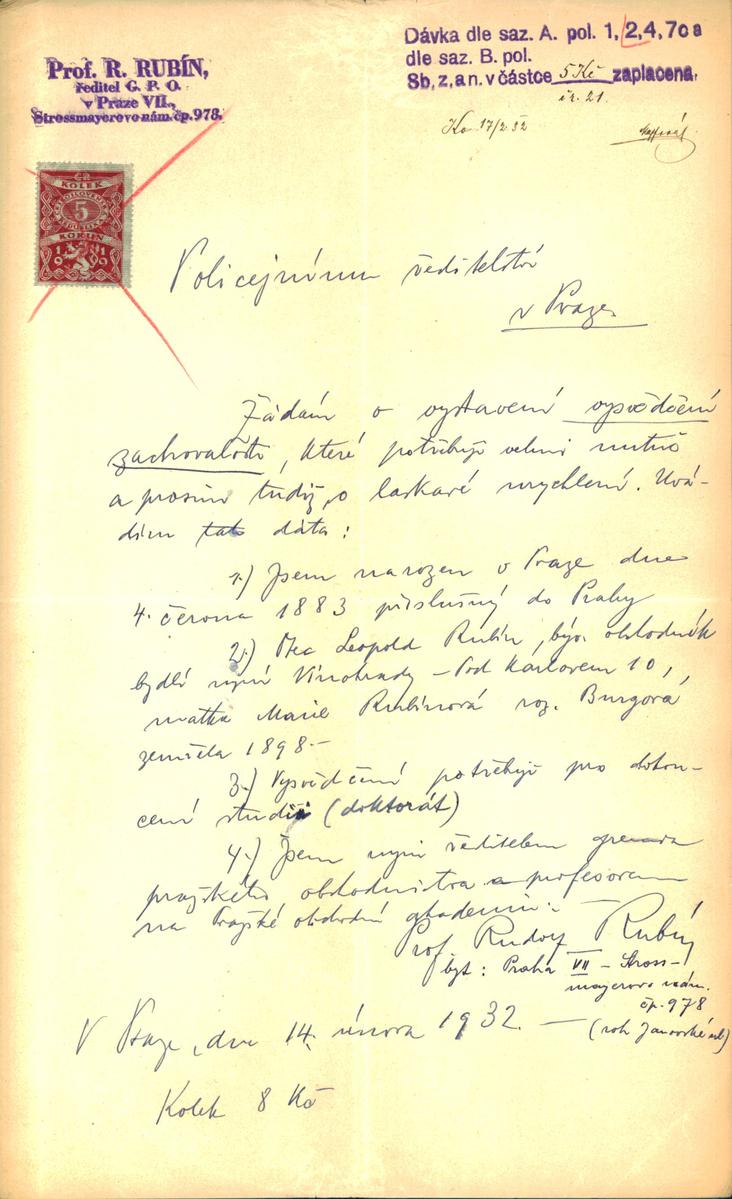 Prof. R. RUBÍN,
ředitel G. P. O.
v Praze VII.,
Strossmayerovo nám. čp. 978.
Dávka dle saz. A. pol. 1, 2, 4, 7 c a
dle saz. B. pol.
Sb. z. a n. v částce 5 Kč zaplacena.
čz. 21.
17/2 32
KOLEK
5
KORUN
1919
Policejnímu ředitelství
v Praze.
Žádám o vystavení vysvědčení
zachovalosti, které potřebuji velmi nutně
a prosím tudíž o laskavé urychlení. Uvá-
dím tato dáta:
1.) Jsem narozen v Praze dne
4. června 1883 příslušný do Prahy
2.) Otec Leopold Rubín, býv. obchodník
bydlí nyní Vinohrady – Pod Karlovem 10,
matka Marie Rubínová roz. Burgová
zemřela 1898.–
3.) Vysvědčení potřebuji pro dokon-
čení studií (doktorát)
4.) Jsem nyní ředitelem gremia
pražského obchodnictva a profesorem
na Pražské obchodní akademii. –
Prof. Rudolf Rubín
byt: Praha VII – Stross-
mayerovo nám.
čp. 978
(roh Janovské ul.)
V Praze, dne 14. února 1932. –
Kolek 8 Kč